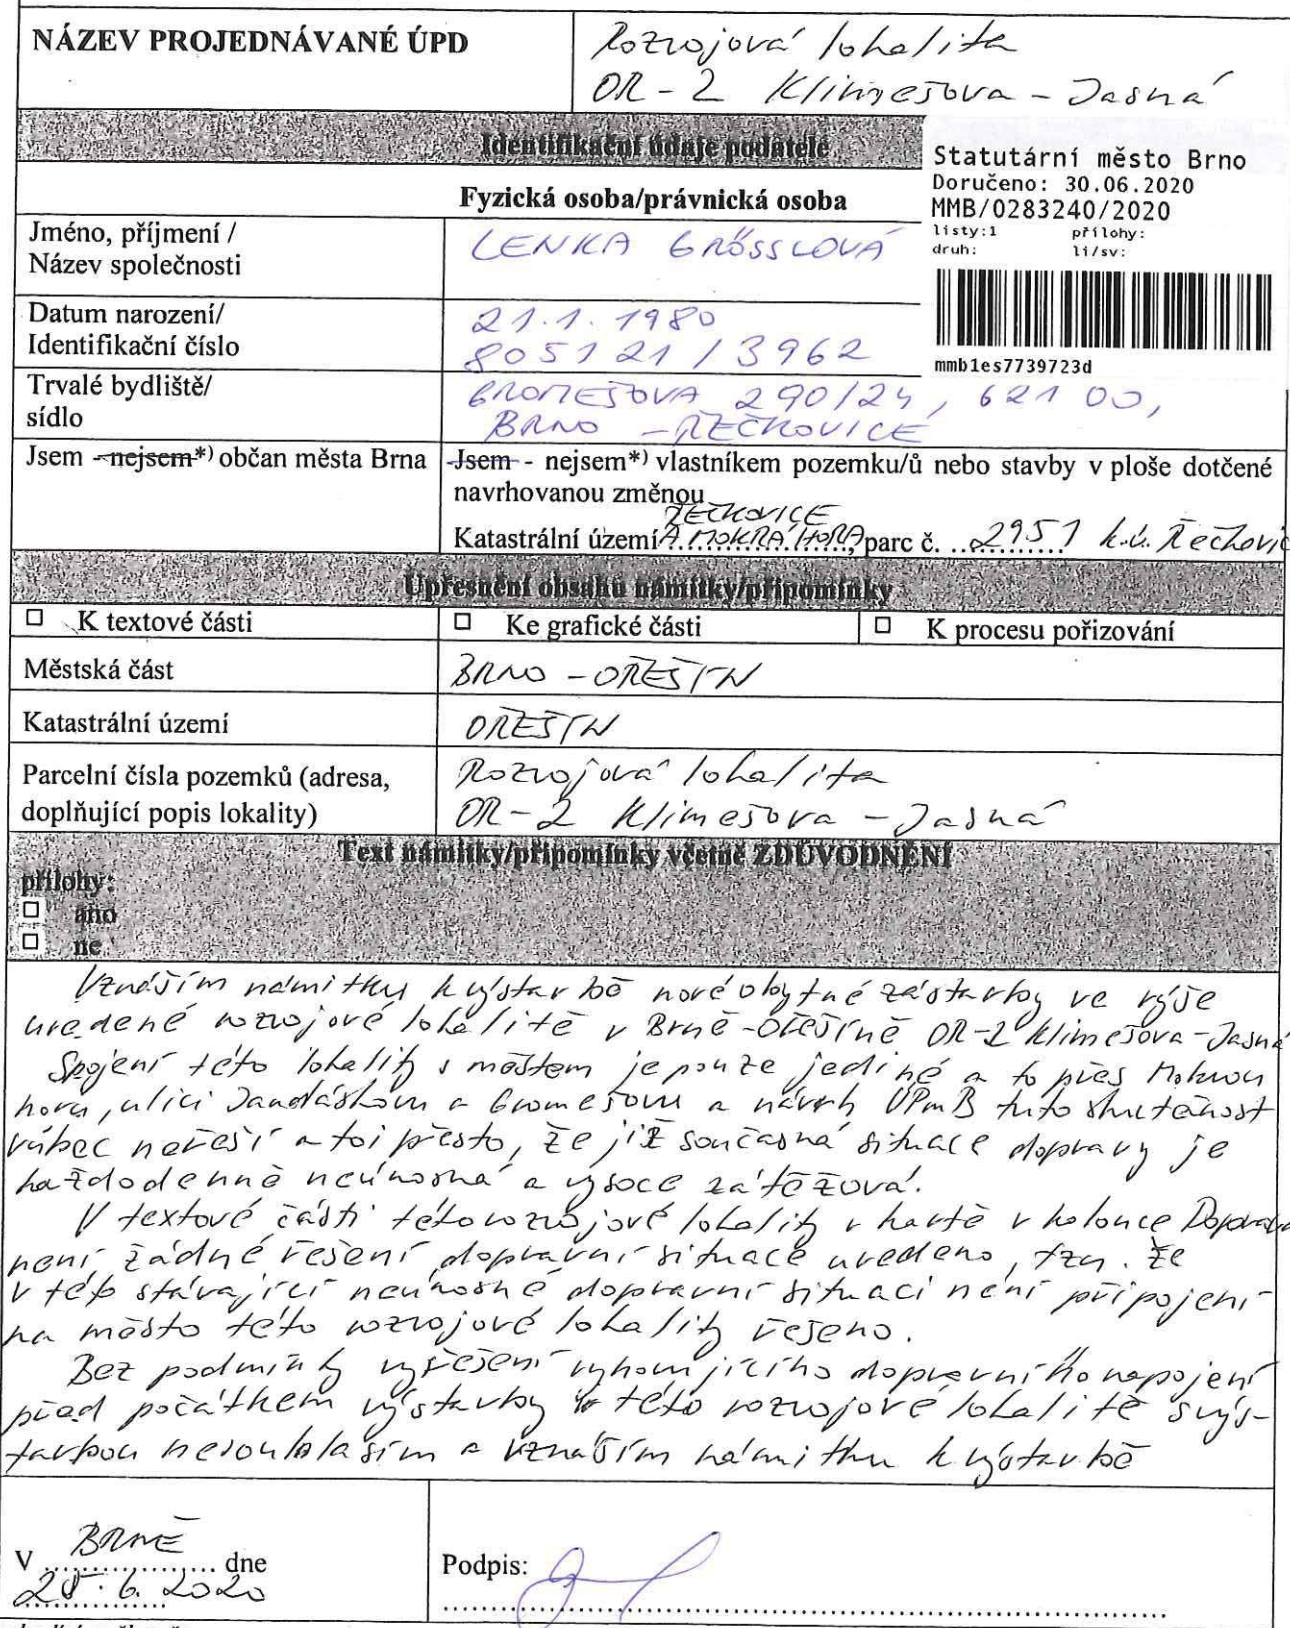 NÁZEV PROJEDNÁVANÉ ÚPD
Rozvojová lokalita
OR-2 Klimešova - Jasná
Identifikační údaje podatele
Statutární město Brno
Doručeno: 30.06.2020
MMB/0283240/2020
listy:1 přílohy:
druh: li/sv:
mmb1es7739723d
Fyzická osoba/právnická osoba
Jméno, příjmení /
Název společnosti
LENKA GRÖSSLOVÁ
Datum narození/
Identifikační číslo
21.1.1980
805121/3962
Trvalé bydliště/
sídlo
GROMEŠOVA 290/24, 621 00,
BRNO - ŘEČKOVICE
Jsem - nejsem*) občan města Brna
Jsem - nejsem*) vlastníkem pozemku/ů nebo stavby v ploše dotčené
navrhovanou změnou
ŘEČKOVICE
Katastrální území A MOKRÁ HORA, parc č. 2951 k.ú. Řečkovic
Upřesnění obsahu námitky/připomínky
☐ K textové části ☐ Ke grafické části ☐ K procesu pořizování
Městská část
BRNO - OŘEŠÍN
Katastrální území
OŘEŠÍN
Parcelní čísla pozemků (adresa,
doplňující popis lokality)
Rozvojová lokalita
OR-2 Klimešova - Jasná
Text námitky/připomínky včetně ZDŮVODNĚNÍ
přílohy:
☐ ano
☐ ne
Vznáším námitku k výstavbě nové obytné zástavby ve výše
uvedené rozvojové lokalitě v Brně-Ořešíně OR-2 Klimešova-Jasná
Spojení této lokality s městem je pouze jediné a to přes Mokrou
horu, ulici Jandáskovu a Gromešovu a návrh ÚPmB tuto skutečnost
vůbec neřeší a to i přesto, že již současná situace dopravy je
každodenně neúnosná a vysoce zátěžová.
V textové části této rozvojové lokality v kartě v kolonce Doprava
není žádné řešení dopravní situace uvedeno, tzn. že
v této stávající neúnosné dopravní situaci není připojení
na město této rozvojové lokality řešeno.
Bez podmínky vyřešení vyhovujícího dopravního napojení
před počátkem výstavby v této rozvojové lokalitě s výs-
tavbou nesouhlasím a vznáším námitku k výstavbě
V BRNĚ dne
6. 2020
Podpis: